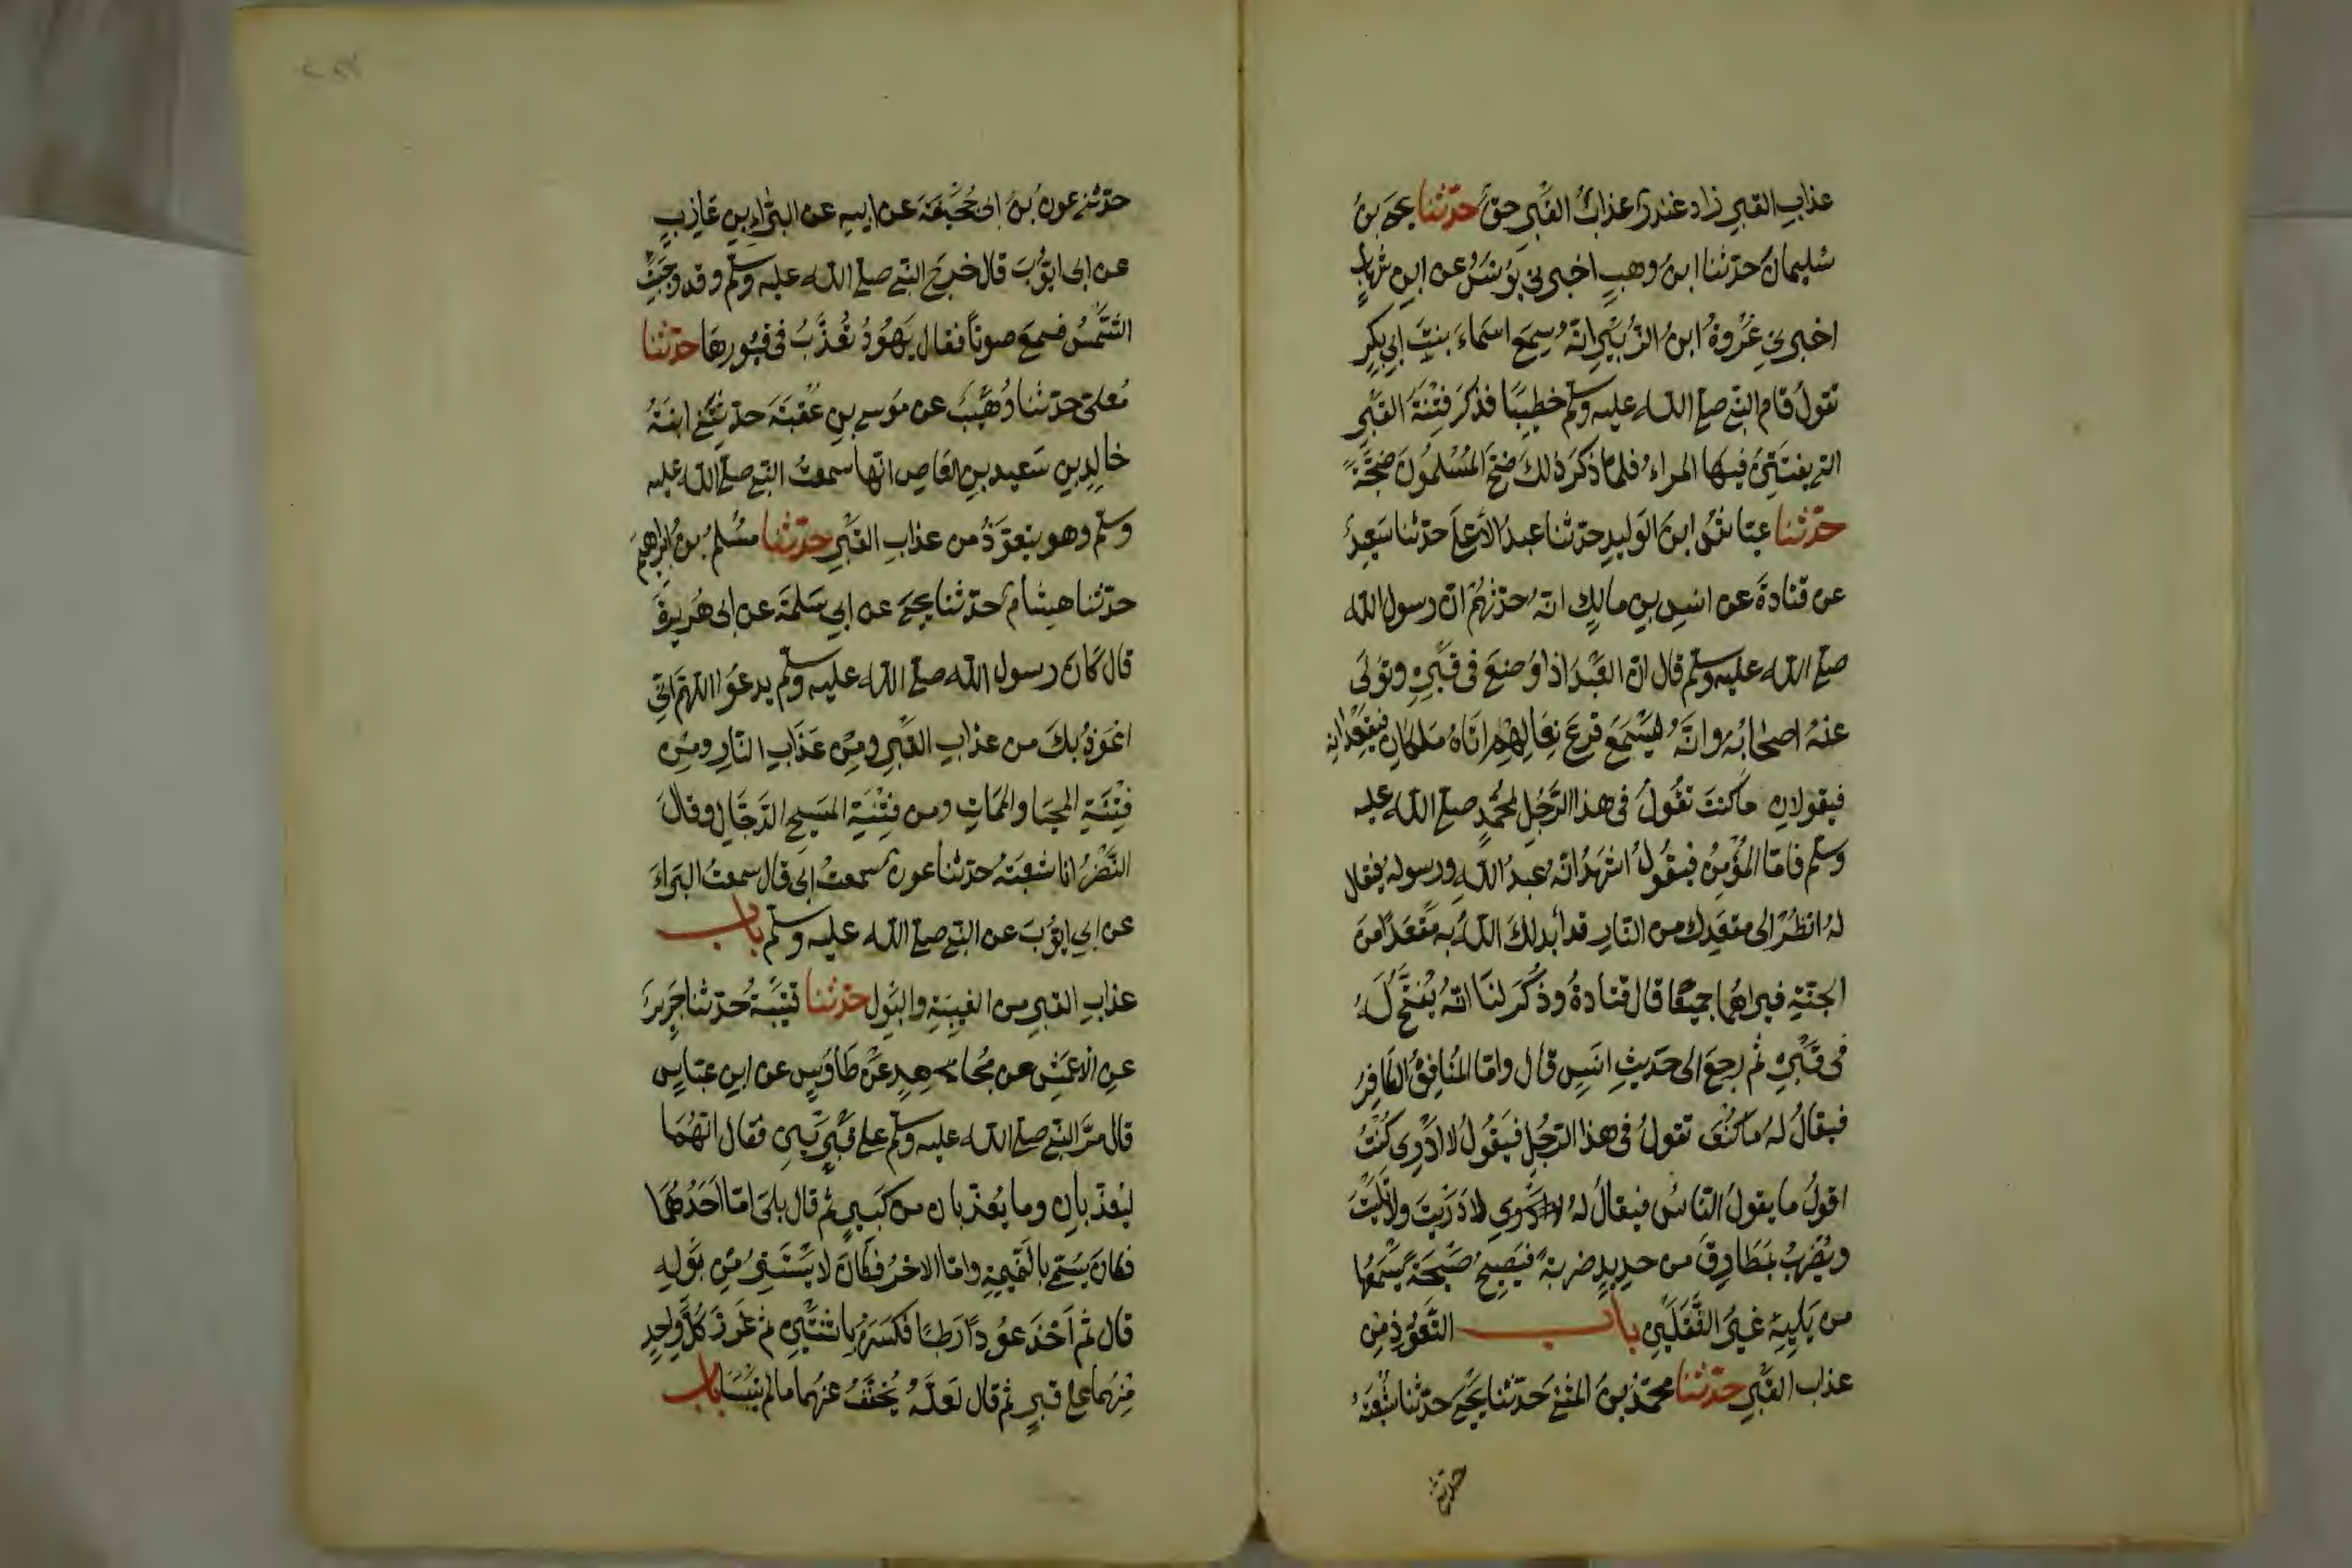 عذاب القبر زاد غندر عذاب القبر حق حدثنا يحيى بن
سليمان حدثنا ابن وهب اخبرني يونس عن ابن شهاب
اخبرني عروة ابن الزبير انه سمع اسماء بنت ابي بكر
تقول قام النبي صلى الله عليه وسلم خطيبا فذكر فتنة القبر
التي يفتتن فيها المراء فلما ذكر ذلك ضج المسلمون ضجة
حدثنا عياش ابن الوليد حدثنا عبد الأعلى حدثنا سعيد
عن قتادة عن انس بن مالك انه حدثهم ان رسول الله
صلى الله عليه وسلم قال ان العبد اذا وضع في قبره وتولى
عنه اصحابه وانه ليسمع قرع نعالهم اتاه ملكان فيقعدانه
فيقولان ما كنت تقول في هذا الرجل لمحمد صلى الله عليه
وسلم فاما المؤمن فيقول اشهد انه عبد الله ورسوله فيقال
له انظر الى مقعدك من النار قد أبدلك الله به مقعدا من
الجنة فيراهما جميعا قال قتادة وذكر لنا انه يفتح له
في قبره ثم رجع الى حديث انس قال واما المنافق الكافر
فيقال له ما كنت تقول في هذا الرجل فيقول لا ادري كنت
اقول ما يقول الناس فيقال له لا دريت ولا تليت
ويضرب بمطارق من حديد ضربة فيصيح صيحة يسمعها
من يليه غير الثقلين باب التعوذ من
عذاب القبر حدثنا محمد بن المثنى حدثنا يحيى حدثنا شعبة
حدثني
حدثني عون بن ابي جحيفة عن ابيه عن البراء بن عازب
عن ابي ايوب قال خرج النبي صلى الله عليه وسلم وقد وجبت
الشمس فسمع صوتا فقال يهود تعذب في قبورها حدثنا
معلى حدثنا وهيب عن موسى بن عقبة حدثتني ابنة
خالد بن سعيد بن العاص انها سمعت النبي صلى الله عليه
وسلم وهو يتعوذ من عذاب القبر حدثنا مسلم بن ابراهيم
حدثنا هشام حدثنا يحيى عن ابي سلمة عن ابي هريرة
قال كان رسول الله صلى الله عليه وسلم يدعوا اللهم اني
اعوذ بك من عذاب القبر ومن عذاب النار ومن
فتنة المحيا والممات ومن فتنة المسيح الدجال وقال
النضر انا شعبة حدثنا عون سمعت ابي قال سمعت البراء
عن ابي ايوب عن النبي صلى الله عليه وسلم باب
عذاب القبر من الغيبة والبول حدثنا قتيبة حدثنا جرير
عن الاعمش عن مجاهد عن طاوس عن ابن عباس
قال مر النبي صلى الله عليه وسلم على قبرين فقال انهما
ليعذبان وما يعذبان من كبير ثم قال بلى اما احدهما
فكان يسعى بالنميمة واما الاخر فكان لا يستتر من بوله
قال ثم أخذ عودا رطبا فكسره باثنتين ثم غرز كل واحد
منهما على قبر ثم قال لعله يخفف عنهما ما لم ييبسا باب